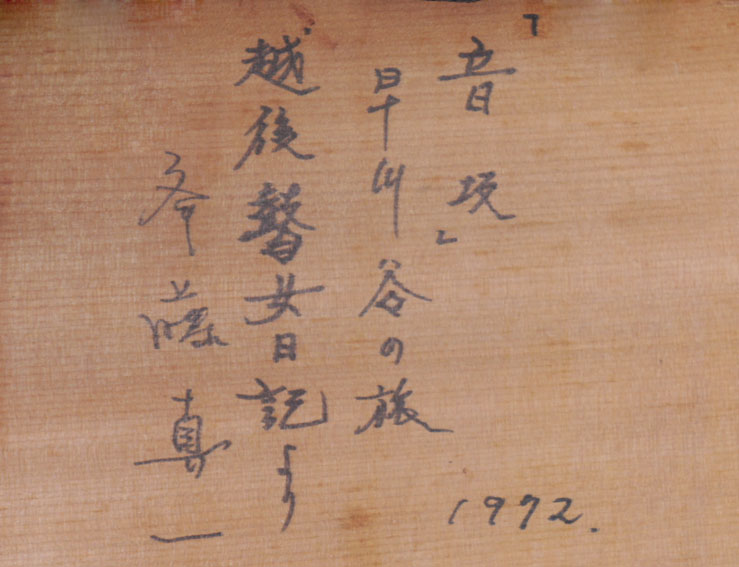 「音坂」
早川谷の旅
越後瞽女日記より
斎藤真一
1972.